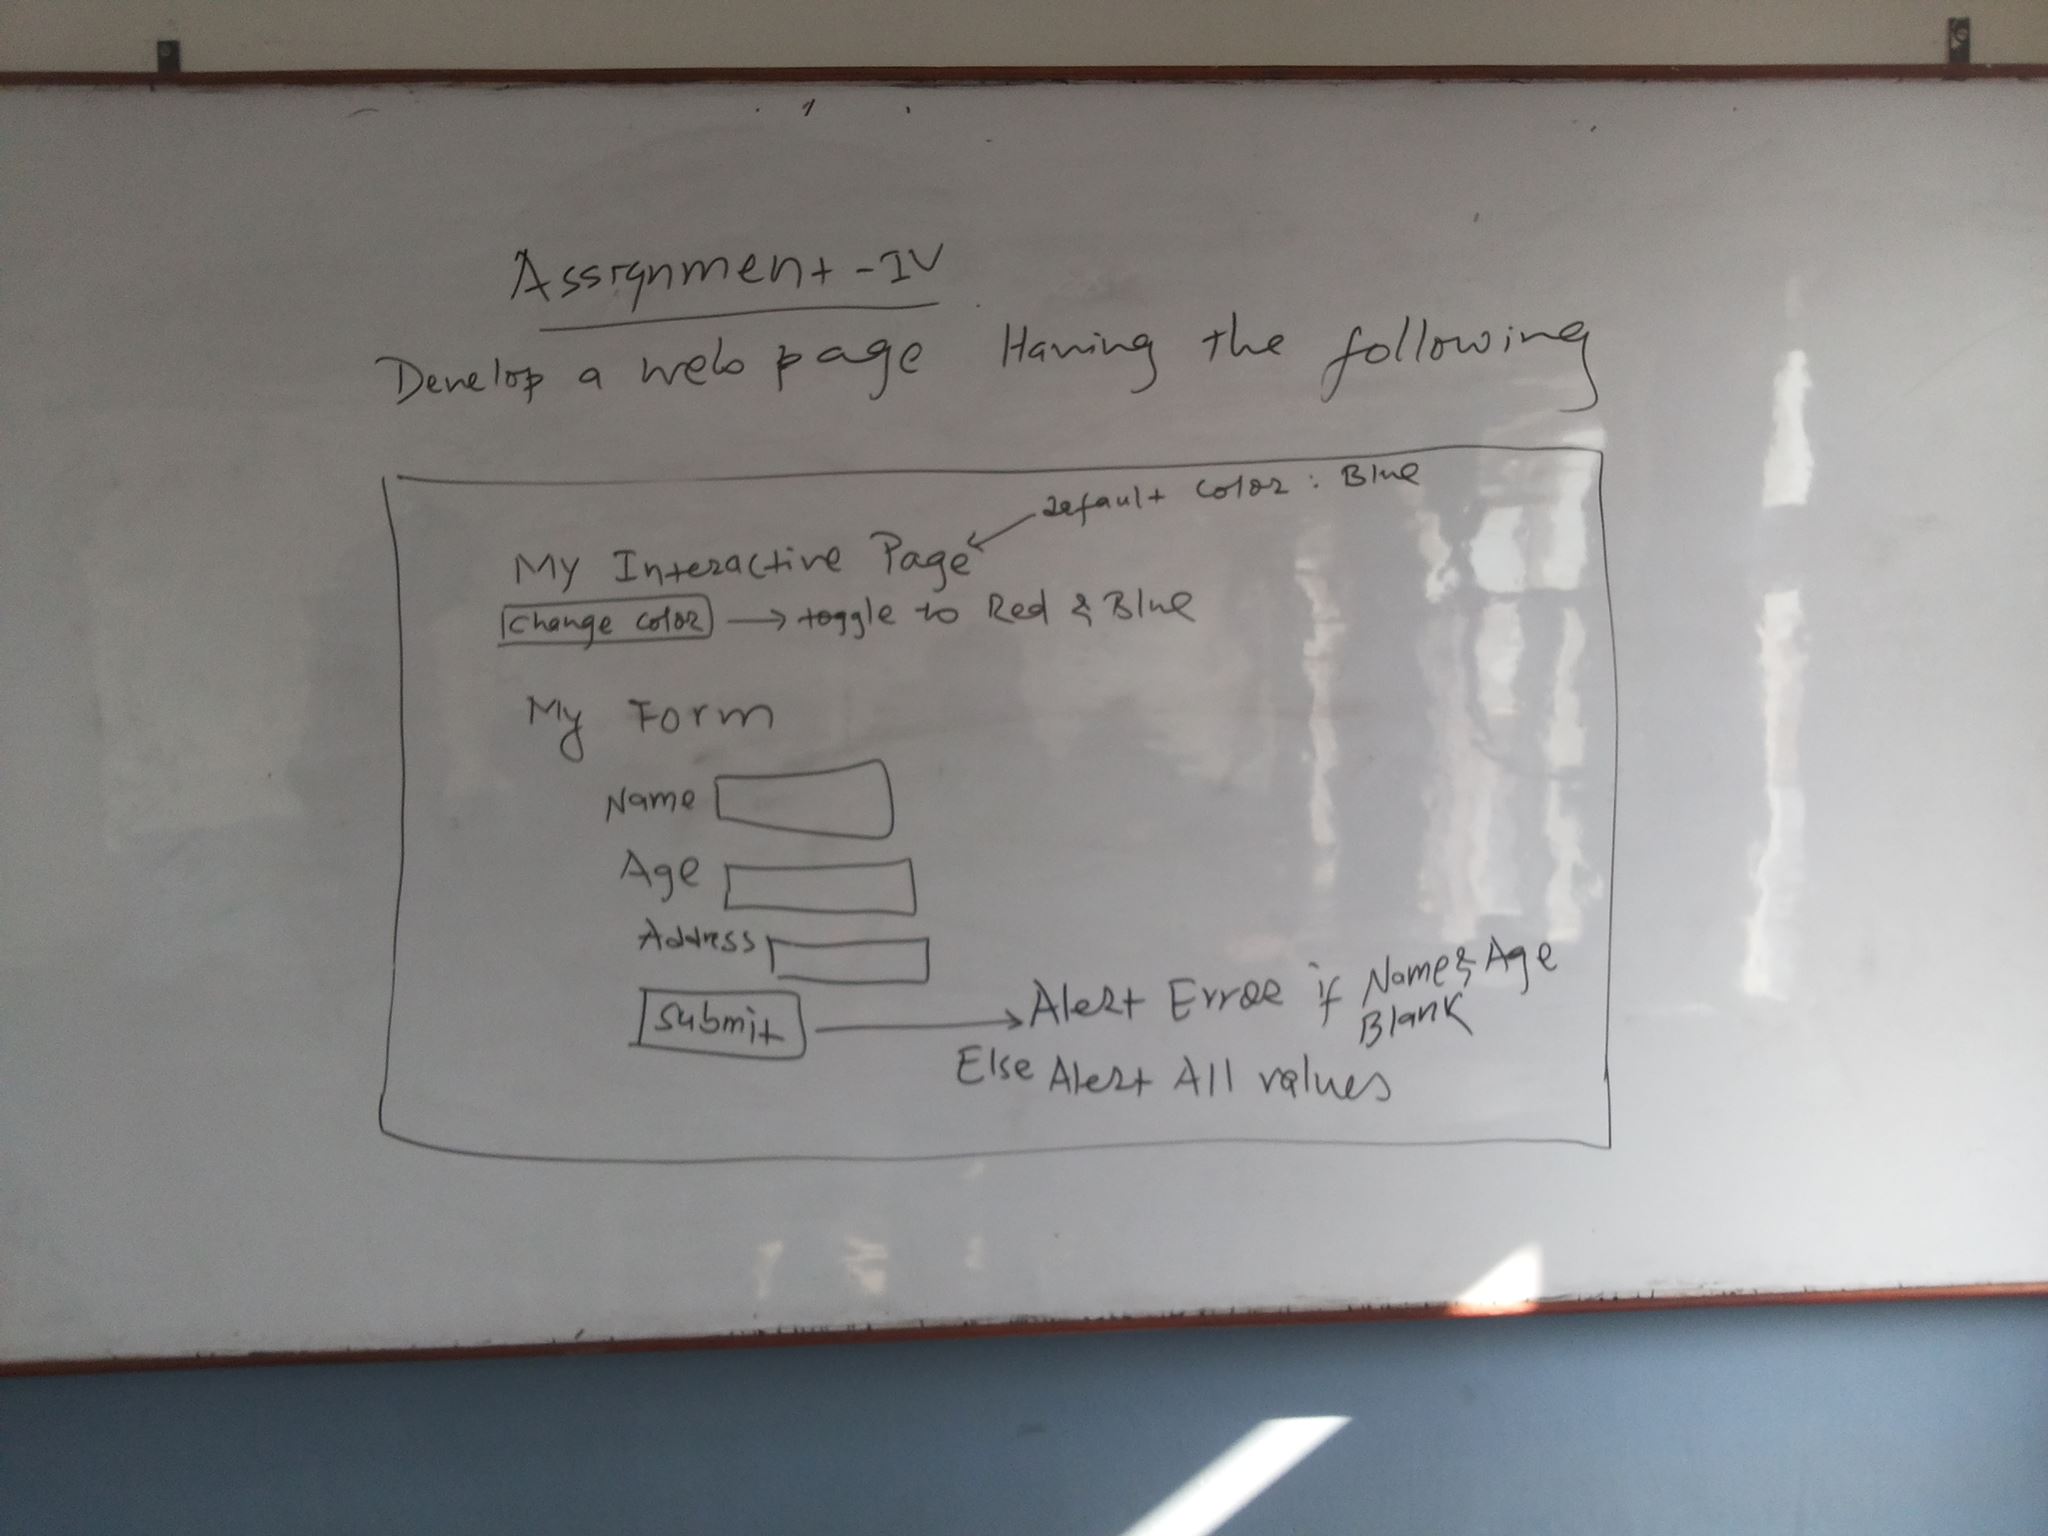 Assignment-IV
Develop a web page Having the following
default color: Blue
My Interactive Page
Change color → toggle to Red & Blue
My Form
Name
Age
Address
Submit → Alert Error if Name & Age
Blank
Else Alert All values